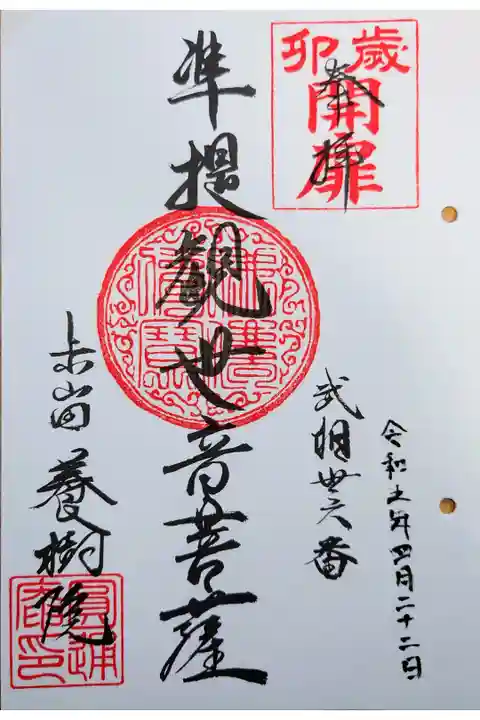 卯歳
開扉
奉拝
令和五年四月二十二日
武相卅六番
準提観世音菩薩
養樹院